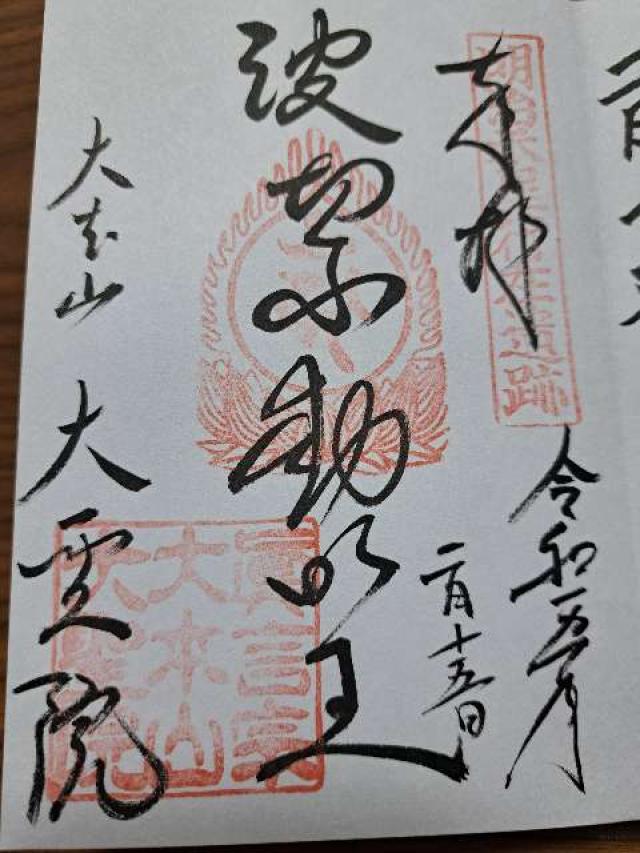 奉拝
遺跡
令和五年
二月十五日
波切不動明王
大本山 大聖院
眞言宗
大本山
大聖院